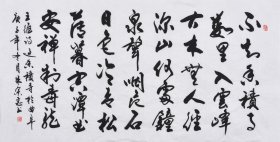 不知香積寺
數里入雲峰
古木無人徑
深山何處鐘
泉聲咽危石
日色冷青松
薄暮空潭曲
安禪制毒龍
王維詩過香積寺於曲阜